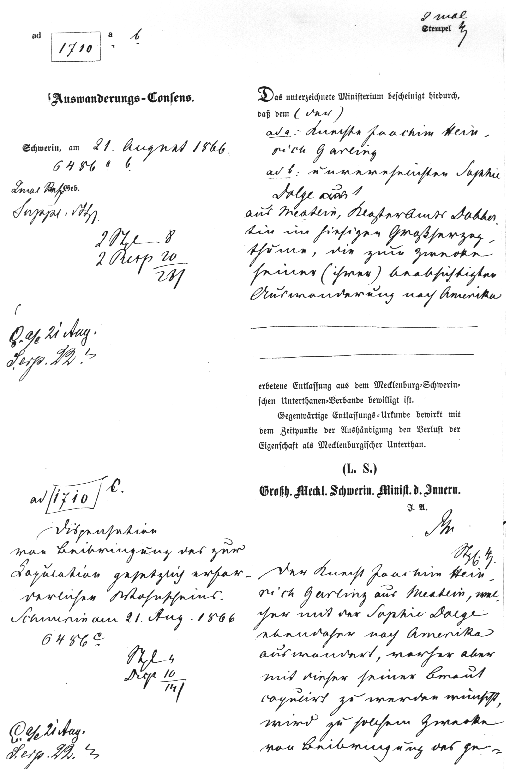 2 mal
Stempel
ad 1710 a b
Auswanderungs-Consens.
Schwerin, am 21. August 1866.
6486 a b.
Das unterzeichnete Ministerium bescheinigt hiedurch,
daß dem (der)
ad a: Knechte Joachim Hein-
rich Garling
ad b: unverehelichten Sophie
Dolge
aus Mestlin, Klosteramts Dobber-
tin im hiesigen Großherzog-
thume, die zum Zwecke
seiner (ihrer) beabsichtigten
Auswanderung nach Amerika
erbetene Entlassung aus dem Mecklenburg-Schwerin-
schen Unterthanen-Verbande bewilligt ist.
Gegenwärtige Entlassungs-Urkunde bewirkt mit
dem Zeitpunkte der Aushändigung den Verlust der
Eigenschaft als Mecklenburgischer Unterthan.
(L. S.)
Großh. Meckl. Schwerin. Minist. d. Innern.
J. A.
2 Stpl 8
2 Resp 20
28
21 Aug.
22
ad 1710 c.
Dispensation
von Beibringung des zur
Copulation gesetzlich erfor-
derlichen Wohnscheins.
Schwerin am 21. Aug. 1866
6486 c
Stpl 4
10
14
21 Aug.
22
Der Knecht Joachim Hein-
rich Garling aus Mestlin, wel-
cher mit der Sophie Dolge
ebendaher nach Amerika
auswandert, vorher aber
mit dieser seiner Braut
copulirt zu werden wünscht,
wird zu solchem Zwecke
von Beibringung des ge-